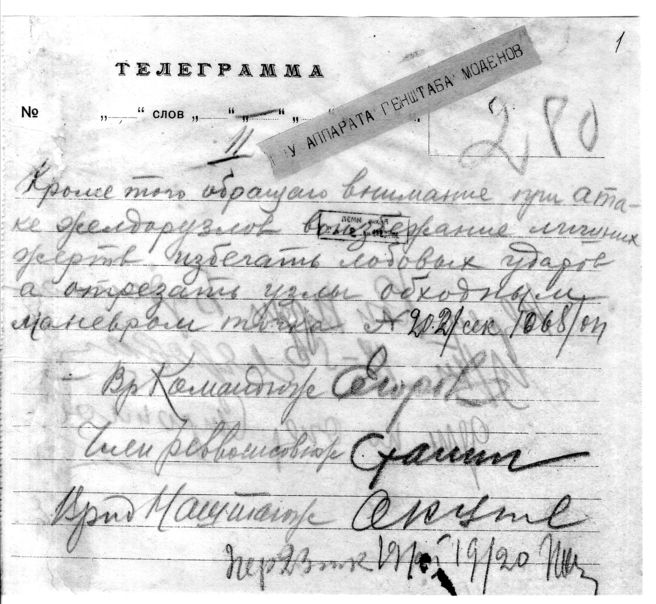 1
ТЕЛЕГРАММА
У АППАРАТА ГЕНШТАБА МОДЕНОВ
№ „ “ слов „ “ „ “ „
11
280
Кроме того обращаю внимание при ата-
ке желдорузлов во избежание лишних
жертв избегать лобовых ударов
а отрезать узлы обходным
маневром точка №
Вр Командюж Егоров
Член реввоенсовюж Сталин
Врид Наштаюж
19/20